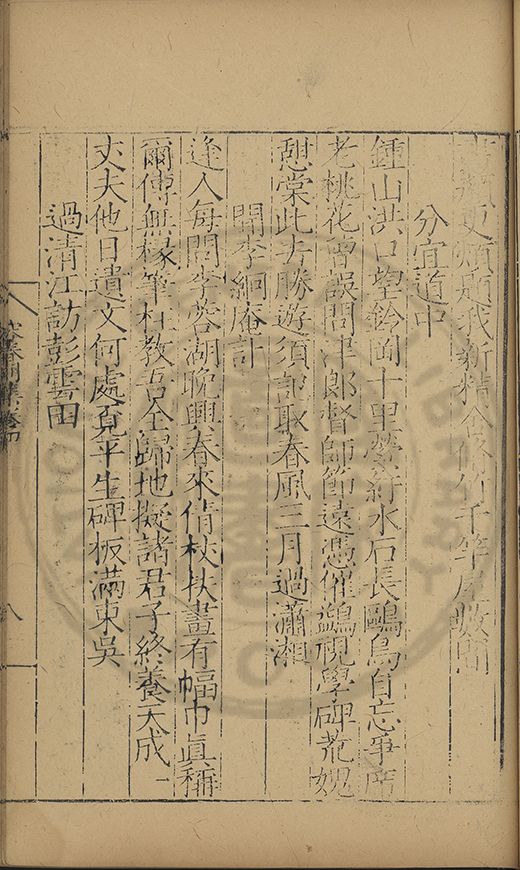 更煩題我新精舍 竹千竿屋數間
分宜道中
鍾山洪口望鈐岡十里縈紆水石長鷗鳥自忘爭席
老桃花曾誤問津郎督師節遠憑催鷁視學碑荒媿
憩棠此去勝遊須記取春風三月過瀟湘
聞李絅庵訃
逢人每問李蓉湖晚興春來倩杖扶畫有幅巾真稱
爾傳無椽筆杜教吾全歸地擬諸君子終養天成一
丈夫他日遺文何處覓平生碑板滿東吳
過清江訪彭雲田
八